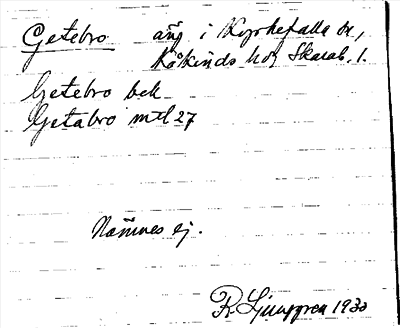 Getebro äng i Kyrkefalla sn,
Kåkinds hd, Skarab. l.
Getebro bek
Getabro mtl 27
Nämnes ej.
R. Ljunggren 1930